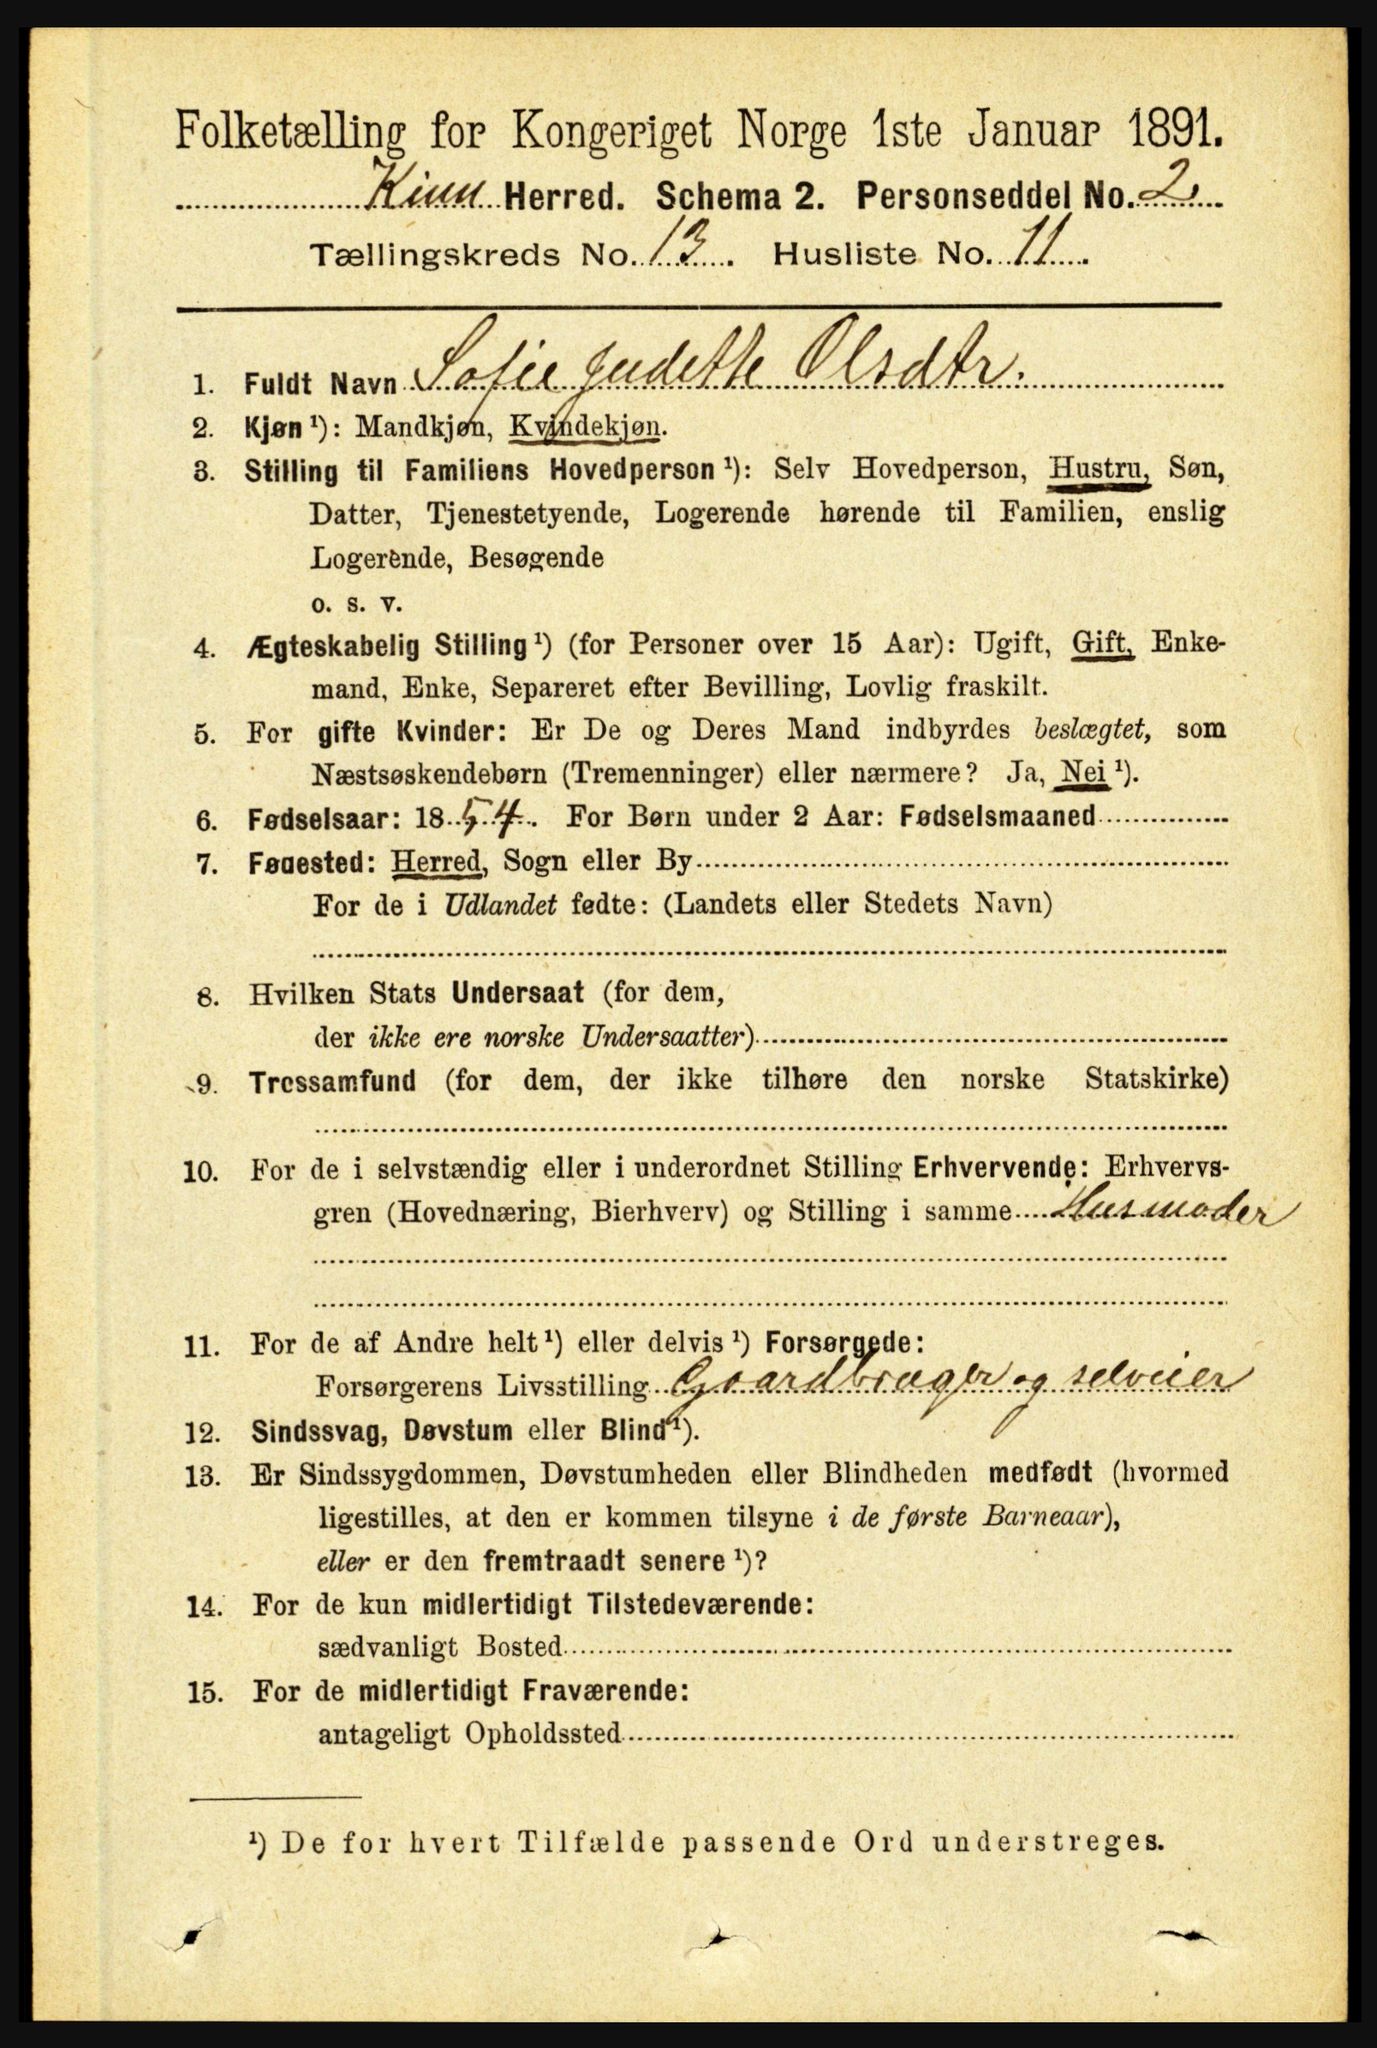 Folketælling for Kongeriget Norge 1ste Januar 1891.
Kinn Herred. Schema 2. Personseddel No. 2.
Tællingskreds No. 13. Husliste No. 11.
1. Fuldt Navn Sofie Judette Olsdtr.
2. Kjøn ¹): Mandkjøn, Kvindekjøn.
3. Stilling til Familiens Hovedperson ¹): Selv Hovedperson, Hustru, Søn,
Datter, Tjenestetyende, Logerende hørende til Familien, enslig
Logerende, Besøgende
o. s. v.
4. Ægteskabelig Stilling ¹) (for Personer over 15 Aar): Ugift, Gift, Enke-
mand, Enke, Separeret efter Bevilling, Lovlig fraskilt.
5. For gifte Kvinder: Er De og Deres Mand indbyrdes beslægtet, som
Næstsøskendebørn (Tremenninger) eller nærmere? Ja, Nei ¹).
6. Fødselsaar: 1854. For Børn under 2 Aar: Fødselsmaaned
7. Fødested: Herred, Sogn eller By
For de i Udlandet fødte: (Landets eller Stedets Navn)
8. Hvilken Stats Undersaat (for dem,
der ikke ere norske Undersaatter)
9. Trossamfund (for dem, der ikke tilhøre den norske Statskirke)
10. For de i selvstændig eller i underordnet Stilling Erhvervende: Erhvervs-
gren (Hovednæring, Bierhverv) og Stilling i samme Husmoder
11. For de af Andre helt ¹) eller delvis ¹) Forsørgede:
Forsørgerens Livsstilling Gaardbruger og selveier
12. Sindssvag, Døvstum eller Blind ¹).
13. Er Sindssygdommen, Døvstumheden eller Blindheden medfødt (hvormed
ligestilles, at den er kommen tilsyne i de første Barneaar),
eller er den fremtraadt senere ¹)?
14. For de kun midlertidigt Tilstedeværende:
sædvanligt Bosted
15. For de midlertidigt Fraværende:
antageligt Opholdssted
¹) De for hvert Tilfælde passende Ord understreges.